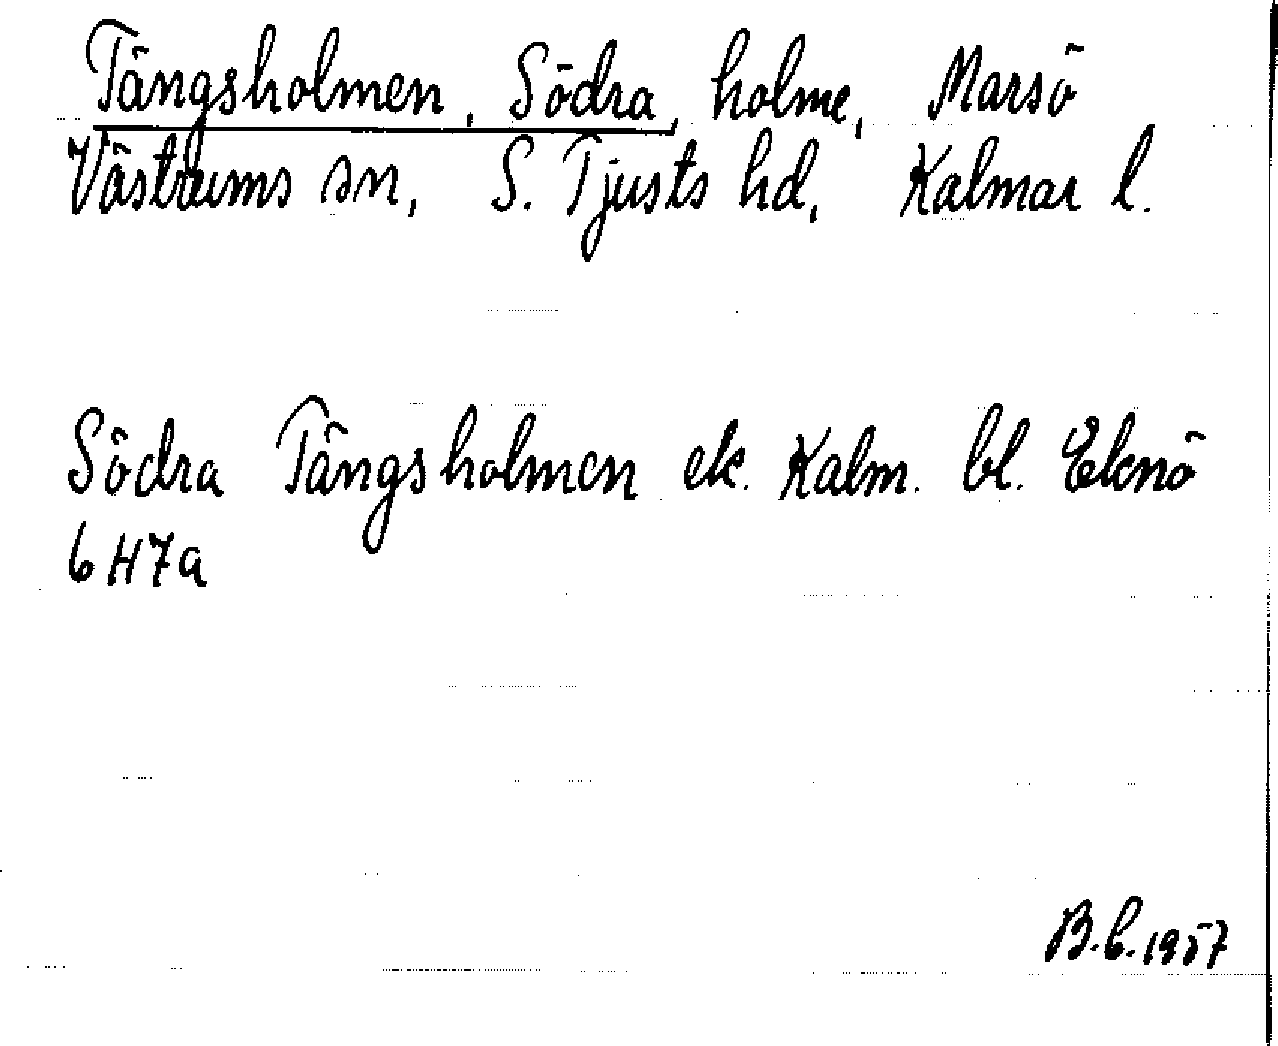 Tängsholmen, Södra, holme, Marsö
Västrums sn, S. Tjusts hd, Kalmar l.
Södra Tängsholmen ek. Kalm. bl. Eknö
6H7a
B.b. 1957